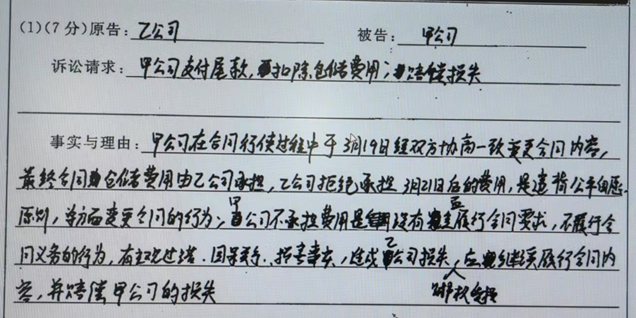 (1)(7分)原告：乙公司 被告：甲公司
诉讼请求：甲公司支付尾款，扣除仓储费用；赔偿损失
事实与理由：甲公司在合同行使过程中于3月19日经双方协商一致变更合同内容，
最终合同仓储费用由乙公司承担，乙公司拒绝承担3月21日后的费用，是违背公平自愿
原则，单方面变更合同的行为；甲公司不承担费用是没有履行合同要求，不履行合
同义务的行为，有主观过错、因果关系、损害事实，造成乙公司损失，应继续履行合同内
容，并赔偿甲公司的损失